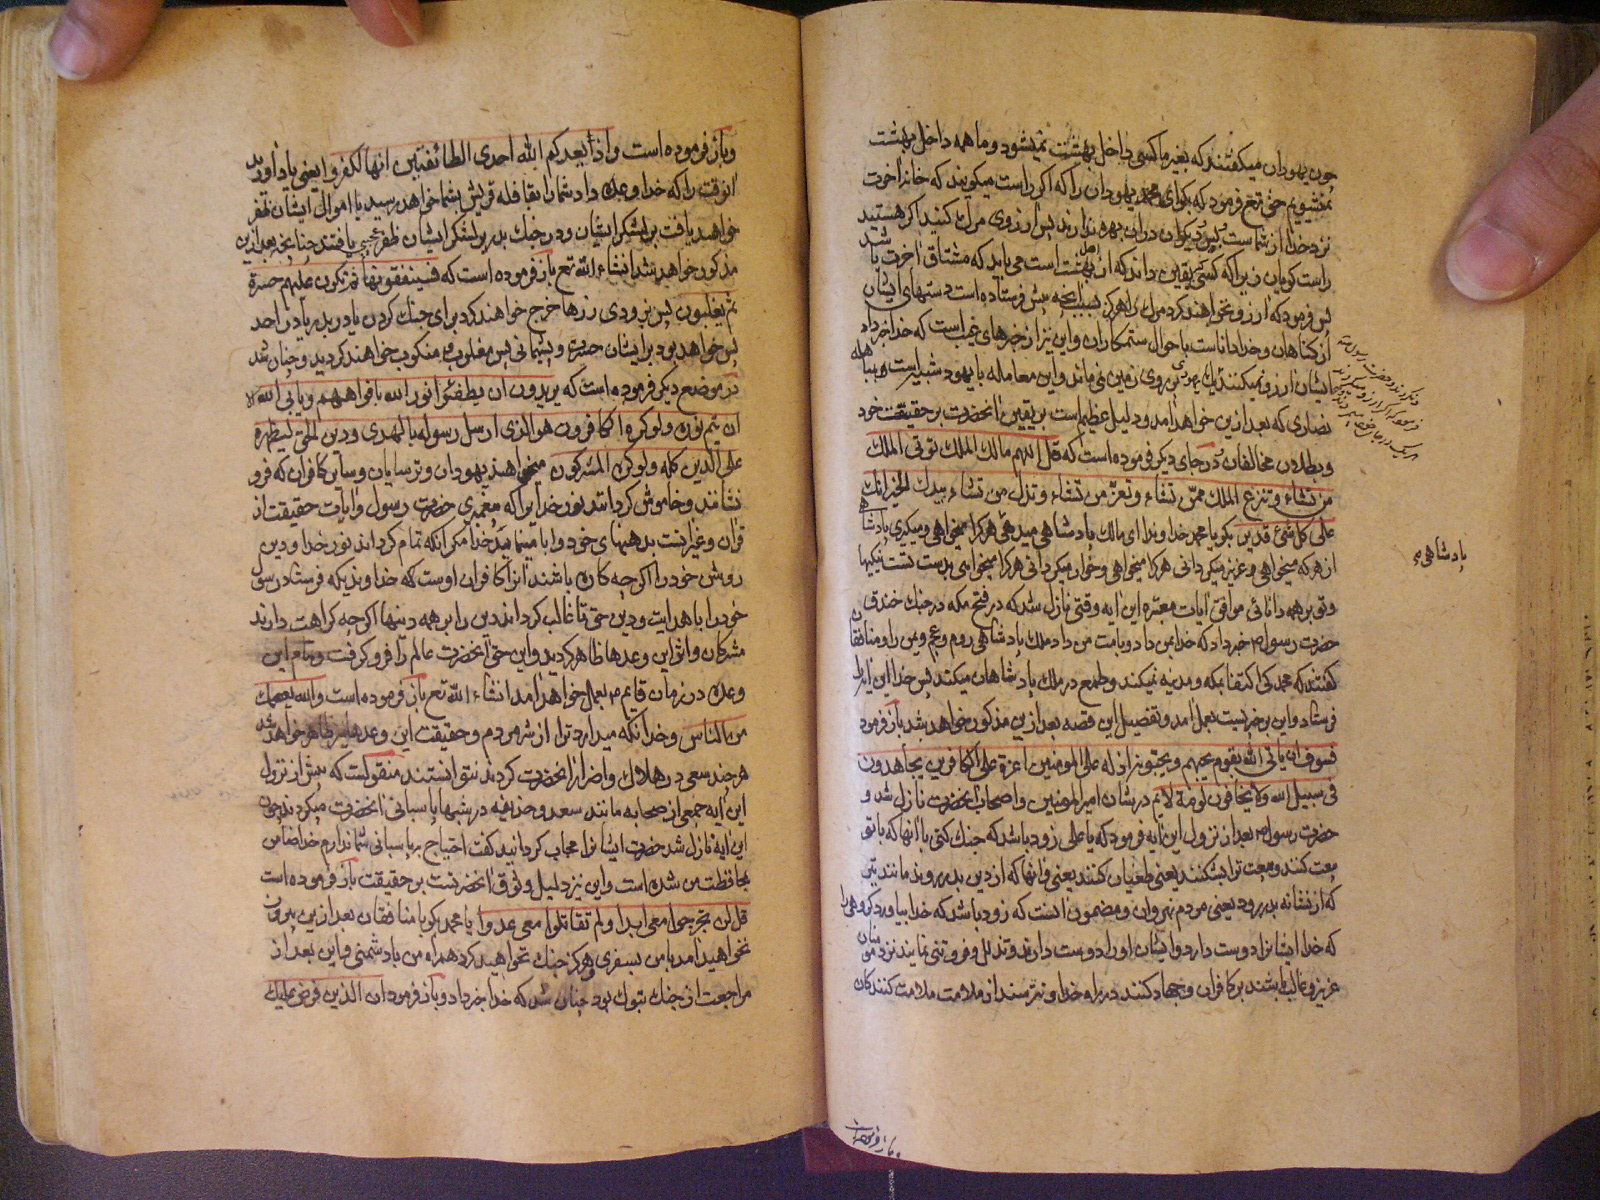 چون یهودان میکفتند که بغیر ما کسی داخل بهشت نمیشود و ما همه داخل بهشت
میشویم حق تع فرمود که بکو ای محمد یهودان را که اکر راست میکویند که خانه آخرت
نزد خدا از شماست و دیکران در ان بهره ندارند پس ارزوی مرك کنید اکر هستید
راست کویان زیرا که کسی یقین داند که از اهل بهشت است می باید که مشتاق آخرت باشد
پس فرمود که ارزو نخواهند کرد مرك را هرکز بسبب آنچه پیش فرستاده است دستهای ایشان
از کناهان و خدا داناست باحوال ستمکاران و این نیز از خبرهای غیب است که خدا خبر داد
ایشان ارزو نمیکنند یك یهودی بر روی زمین نمی ماند و این معامله با یهود شبیه است بمباهله
نصاری که بعد ازین خواهد آمد و دلیل عظیم است بر یقین آنحضرت بر حقیقت خود
و بطلان مخالفان در جای دیکر فرموده است که قل اللهم مالك الملك تؤتی الملك
من تشاء و تنزع الملك ممن تشاء و تعز من تشاء و تذل من تشاء بیدك الخیر انك
علی کل شیء قدیر بکو یا محمد خداوندا ای مالك پادشاهی میدهی هرکرا میخواهی و میکیری پادشاهی
از هرکه میخواهی و عزیز میکردانی هرکرا میخواهی و خوار میکردانی هرکرا میخواهی بدست تست نیکیها
و تو بر همه دانائی موافق آیات معتبره این آیه وقتی نازل شد که در فتح مکه در جنك خندق
حضرت رسول خبر داد که خدا بمن داد و بامت من داد ملك پادشاهی روم و عجم و یمن را و منافقان
کفتند که محمد کی اکتفا بمکه و مدینه نمیکند و طمع در ملك پادشاهان میکند پس خدا این آیه را
فرستاد و این بر خبریست بعمل آمد و تفصیل این قصه بعد ازین مذکور خواهد شد باز فرمود
فسوف یاتی الله بقوم یحبهم و یحبونه اذلة علی المومنین اعزة علی الکافرین یجاهدون
فی سبیل الله ولا یخافون لومة لایم در شان امیر المومنین و اصحاب آنحضرت نازل شد و
حضرت رسول بعد از نزول این آیه فرمود که یا علی زود باشد که جنك کنی با آنها که با تو
بیعت کنند و بیعت ترا بشکنند یعنی طغیان کنند یعنی و آنها که از دین بدر روند مانند تیر
که از نشانه بدر رود یعنی مردم نهروان و مضمون آنست که زود باشد که خدا بیاورد کروهی را
که خدا ایشانرا دوست دارد و ایشان او را دوست دارند و تذلل و فروتنی نمایند نزد مومنان
عزیز و غالب باشند بر کافران و جهاد کنند در راه خدا و نترسند از ملامت ملامت کنندکان
پادشاهی
و باز فرموده است و اذ یعدکم الله احدی الطائفتین انها لکم یعنی یاد آورید
انوقت را که خدا وعده داد شما را بقافله قریش بشما خواهد رسید یا اموال ایشان ظفر
خواهید یافت بر لشکر ایشان و در جنك بدر بر لشکر ایشان ظفر عجیبی یافتند چنانچه بعد ازین
مذکور خواهد شد انشاء الله تع باز فرموده است که فسینفقونها ثم تکون علیهم حسرة
ثم یغلبون پس بزودی زرها خرج خواهند کرد برای جنك کردن با در بدر یا در احد
پس خواهد بود بر ایشان حسرت و پشیمانی پس مغلوب و منکوب خواهند کردید و چنان شد
در موضع دیکر فرموده است که یریدون ان یطفئوا نور الله بافواههم و یابی الله الا
ان یتم نوره ولو کره الکافرون هو الذی ارسل رسوله بالهدی و دین الحق لیظهره
علی الدین کله ولو کره المشرکون میخواهند یهودان و ترسایان و سایر کافران که فرو
نشانند و خاموش کردانند نور خدا را که محمدی حضرت رسول و آیات حقیقت از
قران و غیر آنست بدهنهای خود و ابا مینماید خدا مکر آنکه تمام کرداند نور خدا و دین
روشن خود را اکرچه کاره باشند آنرا کافران اوست که خداوندیکه فرستاد رسول
خود را با هدایت و دین حق تا غالب کرداند دین را بر همه دینها اکرچه کراهت دارند
مشرکان و اثر این وعدها ظاهر کردید و این حق آنحضرت عالم را فرو کرفت و تمام این
وعده در زمان قایم بعمل خواهد آمد انشاء الله تع باز فرموده است والله یعصمك
من الناس و خدا نکه میدارد ترا از شر مردم و حقیقت این وعدها نیز ظاهر خواهد شد
هر چند سعی در هلاك و اضرار آنحضرت کردند نتوانستند منقولست که پیش از نزول
این آیه جمعی از صحابه مانند سعد و حذیفه در شبها پاسبانی آنحضرت میکردند چون
این آیه نازل شد حضرت ایشانرا مجاب کردانید کفت احتیاج به پاسبانی شما ندارم خدا ضامن
محافظت من شده است و این نیز دلیل وثوق آنحضرتست بر حقیقت باز فرموده است
قل لن تخرجوا معی ابدا و لن تقاتلوا معی عدوا یا محمد بکو با منافقان بعد ازین بیرون
نخواهید آمد با من بسفری و هرکز جنك نخواهید کرد همراه من با دشمنی و این بعد از
مراجعت از جنك تبوك بود چنان شد که خدا خبر داد و باز فرمود ان الذین فرض علیك